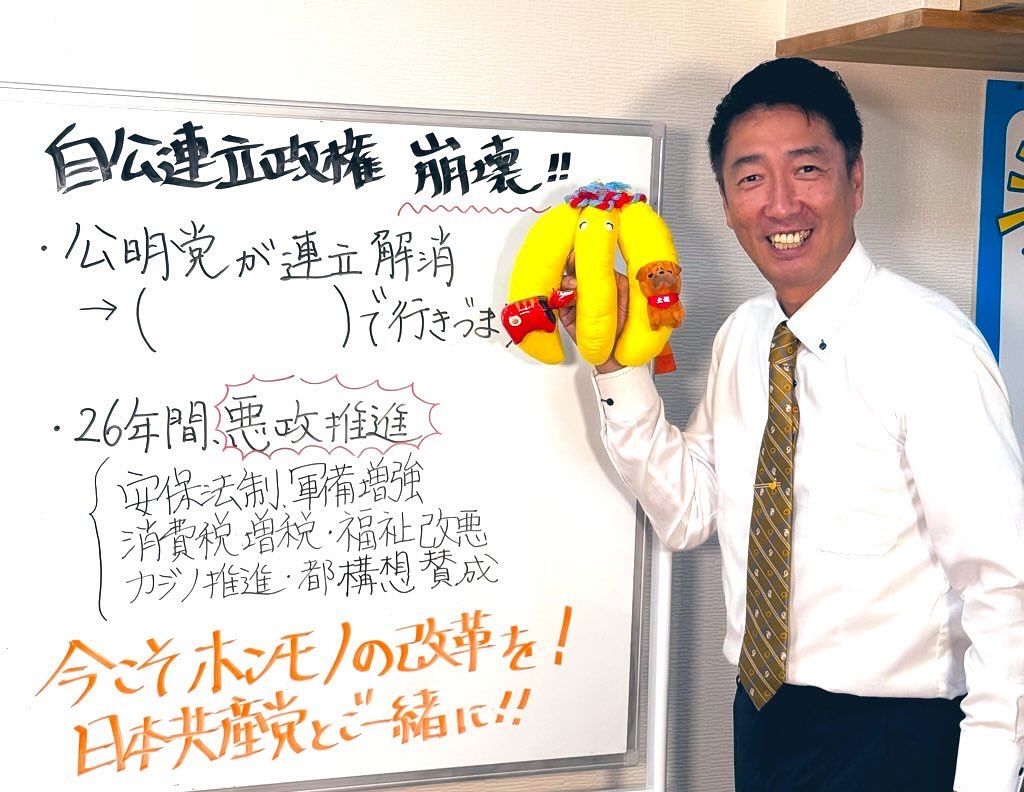 自公連立政権 崩壊!!
・公明党が連立解消
→(　　　)で行きづま
・26年間、悪政推進
安保法制、軍備増強
消費税増税・福祉改悪
カジノ推進・都構想賛成
今こそホンモノの改革を!
日本共産党とご一緒に!!